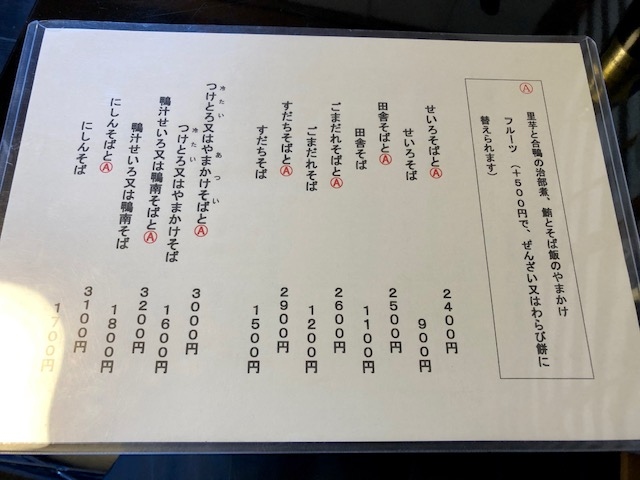 Ⓐ 里芋と合鴨の治部煮、鮪とそば飯のやまかけ
フルーツ (+500円で、ぜんざい又はわらび餅に
替えられます)
せいろそばとⒶ 2400円
せいろそば 900円
田舎そばとⒶ 2500円
田舎そば 1100円
ごまだれそばとⒶ 2600円
ごまだれそば 1200円
すだちそばとⒶ 2900円
すだちそば 1500円
冷たい あつい
つけとろ又はやまかけそばとⒶ 3000円
冷たい
つけとろ又はやまかけそば 1600円
鴨汁せいろ又は鴨南そばとⒶ 3200円
鴨汁せいろ又は鴨南そば 1800円
にしんそばとⒶ 3100円
にしんそば 1700円